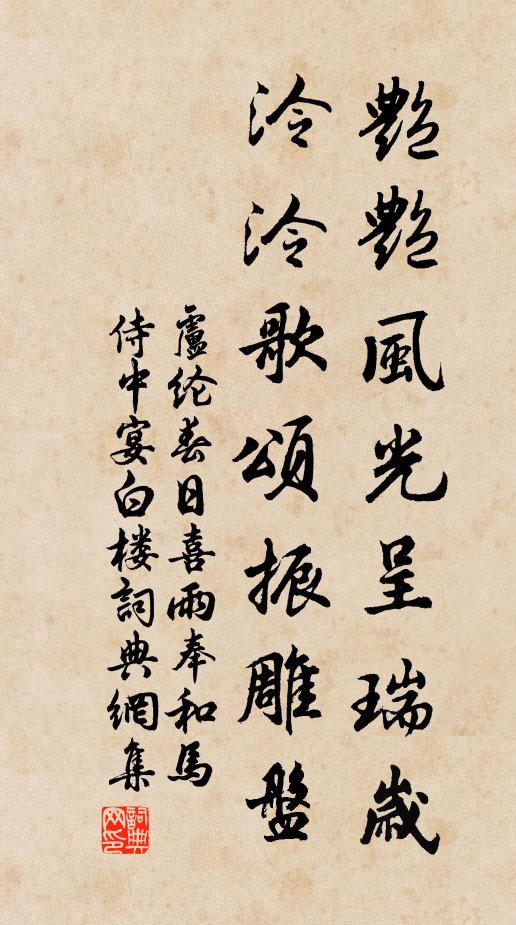 艷艷風光呈瑞歲
泠泠歌頌振雕盤
盧纶春日喜雨奉和馬
侍中宴白楼詞典網集
詞典网印